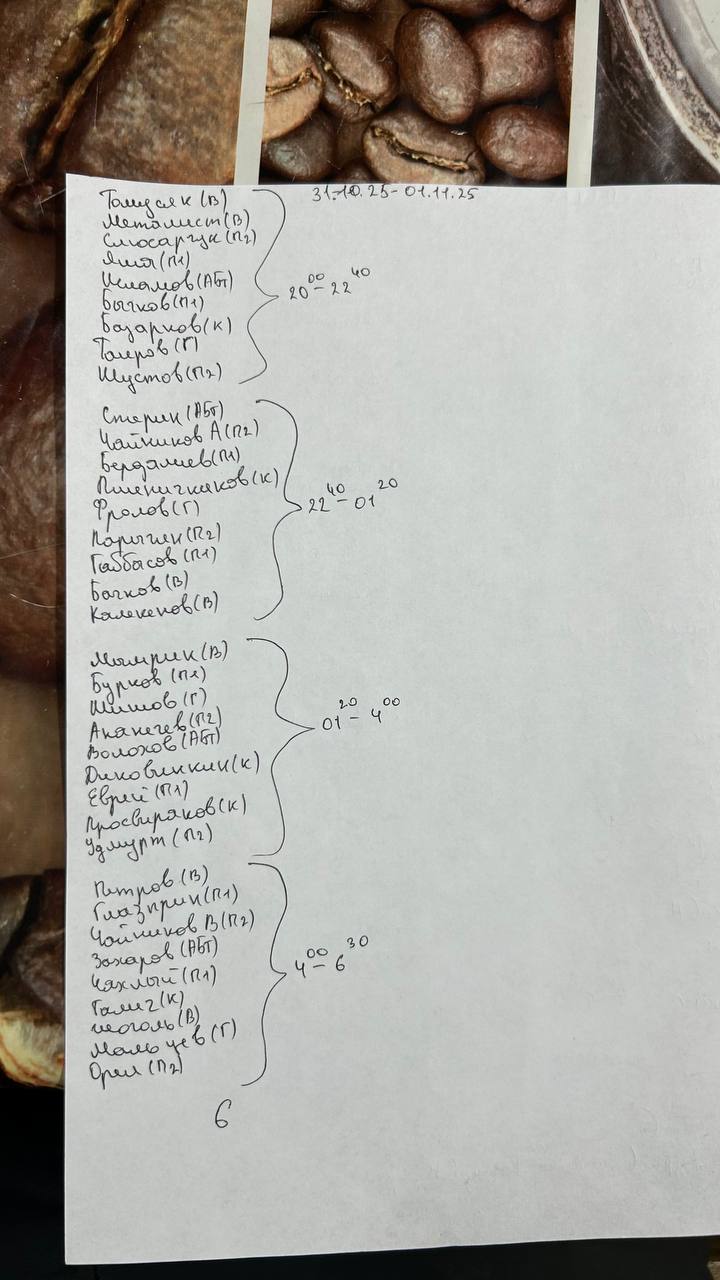 31.10.25-01.11.25
Тамузяк (В)
Металист (В)
Слюсарчук (П2)
Яшя (П1)
Исламов (АБТ)
Бычков (П1)
Базарков (К)
Таиров (Г)
Шустов (П2)
20⁰⁰-22⁴⁰
Стерин (АБТ)
Чайников А (П2)
Бердалиев (П1)
Пшеничников (К)
Фролов (Г)
Парыгин (П2)
Габбасов (П1)
Бачков (В)
Калекенов (В)
22⁴⁰-01²⁰
Мымрик (В)
Бурков (П1)
Шишов (Г)
Ананичев (П2)
Волохов (АБТ)
Диковинкин (К)
Еврей (П1)
Просвиряков (К)
Удмурт (П2)
01²⁰-4⁰⁰
Петров (В)
Глазприк (П1)
Чайников В (П2)
Захаров (АБТ)
Чахлый (П1)
Галиг (К)
Моголь (В)
Мальцев (Г)
Орел (П2)
4⁰⁰-6³⁰
6